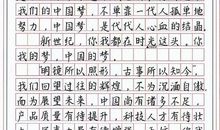 我们的中国梦，不单靠一代人孤单地
努力，中国梦，是代代人心血的结晶。
新世纪，你我都在时光这头，你
我的中国梦。
明镜所以照形，古事所以知今，
我们回望过往的辉煌，不为沉湎自傲，
而为展望未来，中国尚有诸多不足，
产品质量有待提升，科技人才有待壮